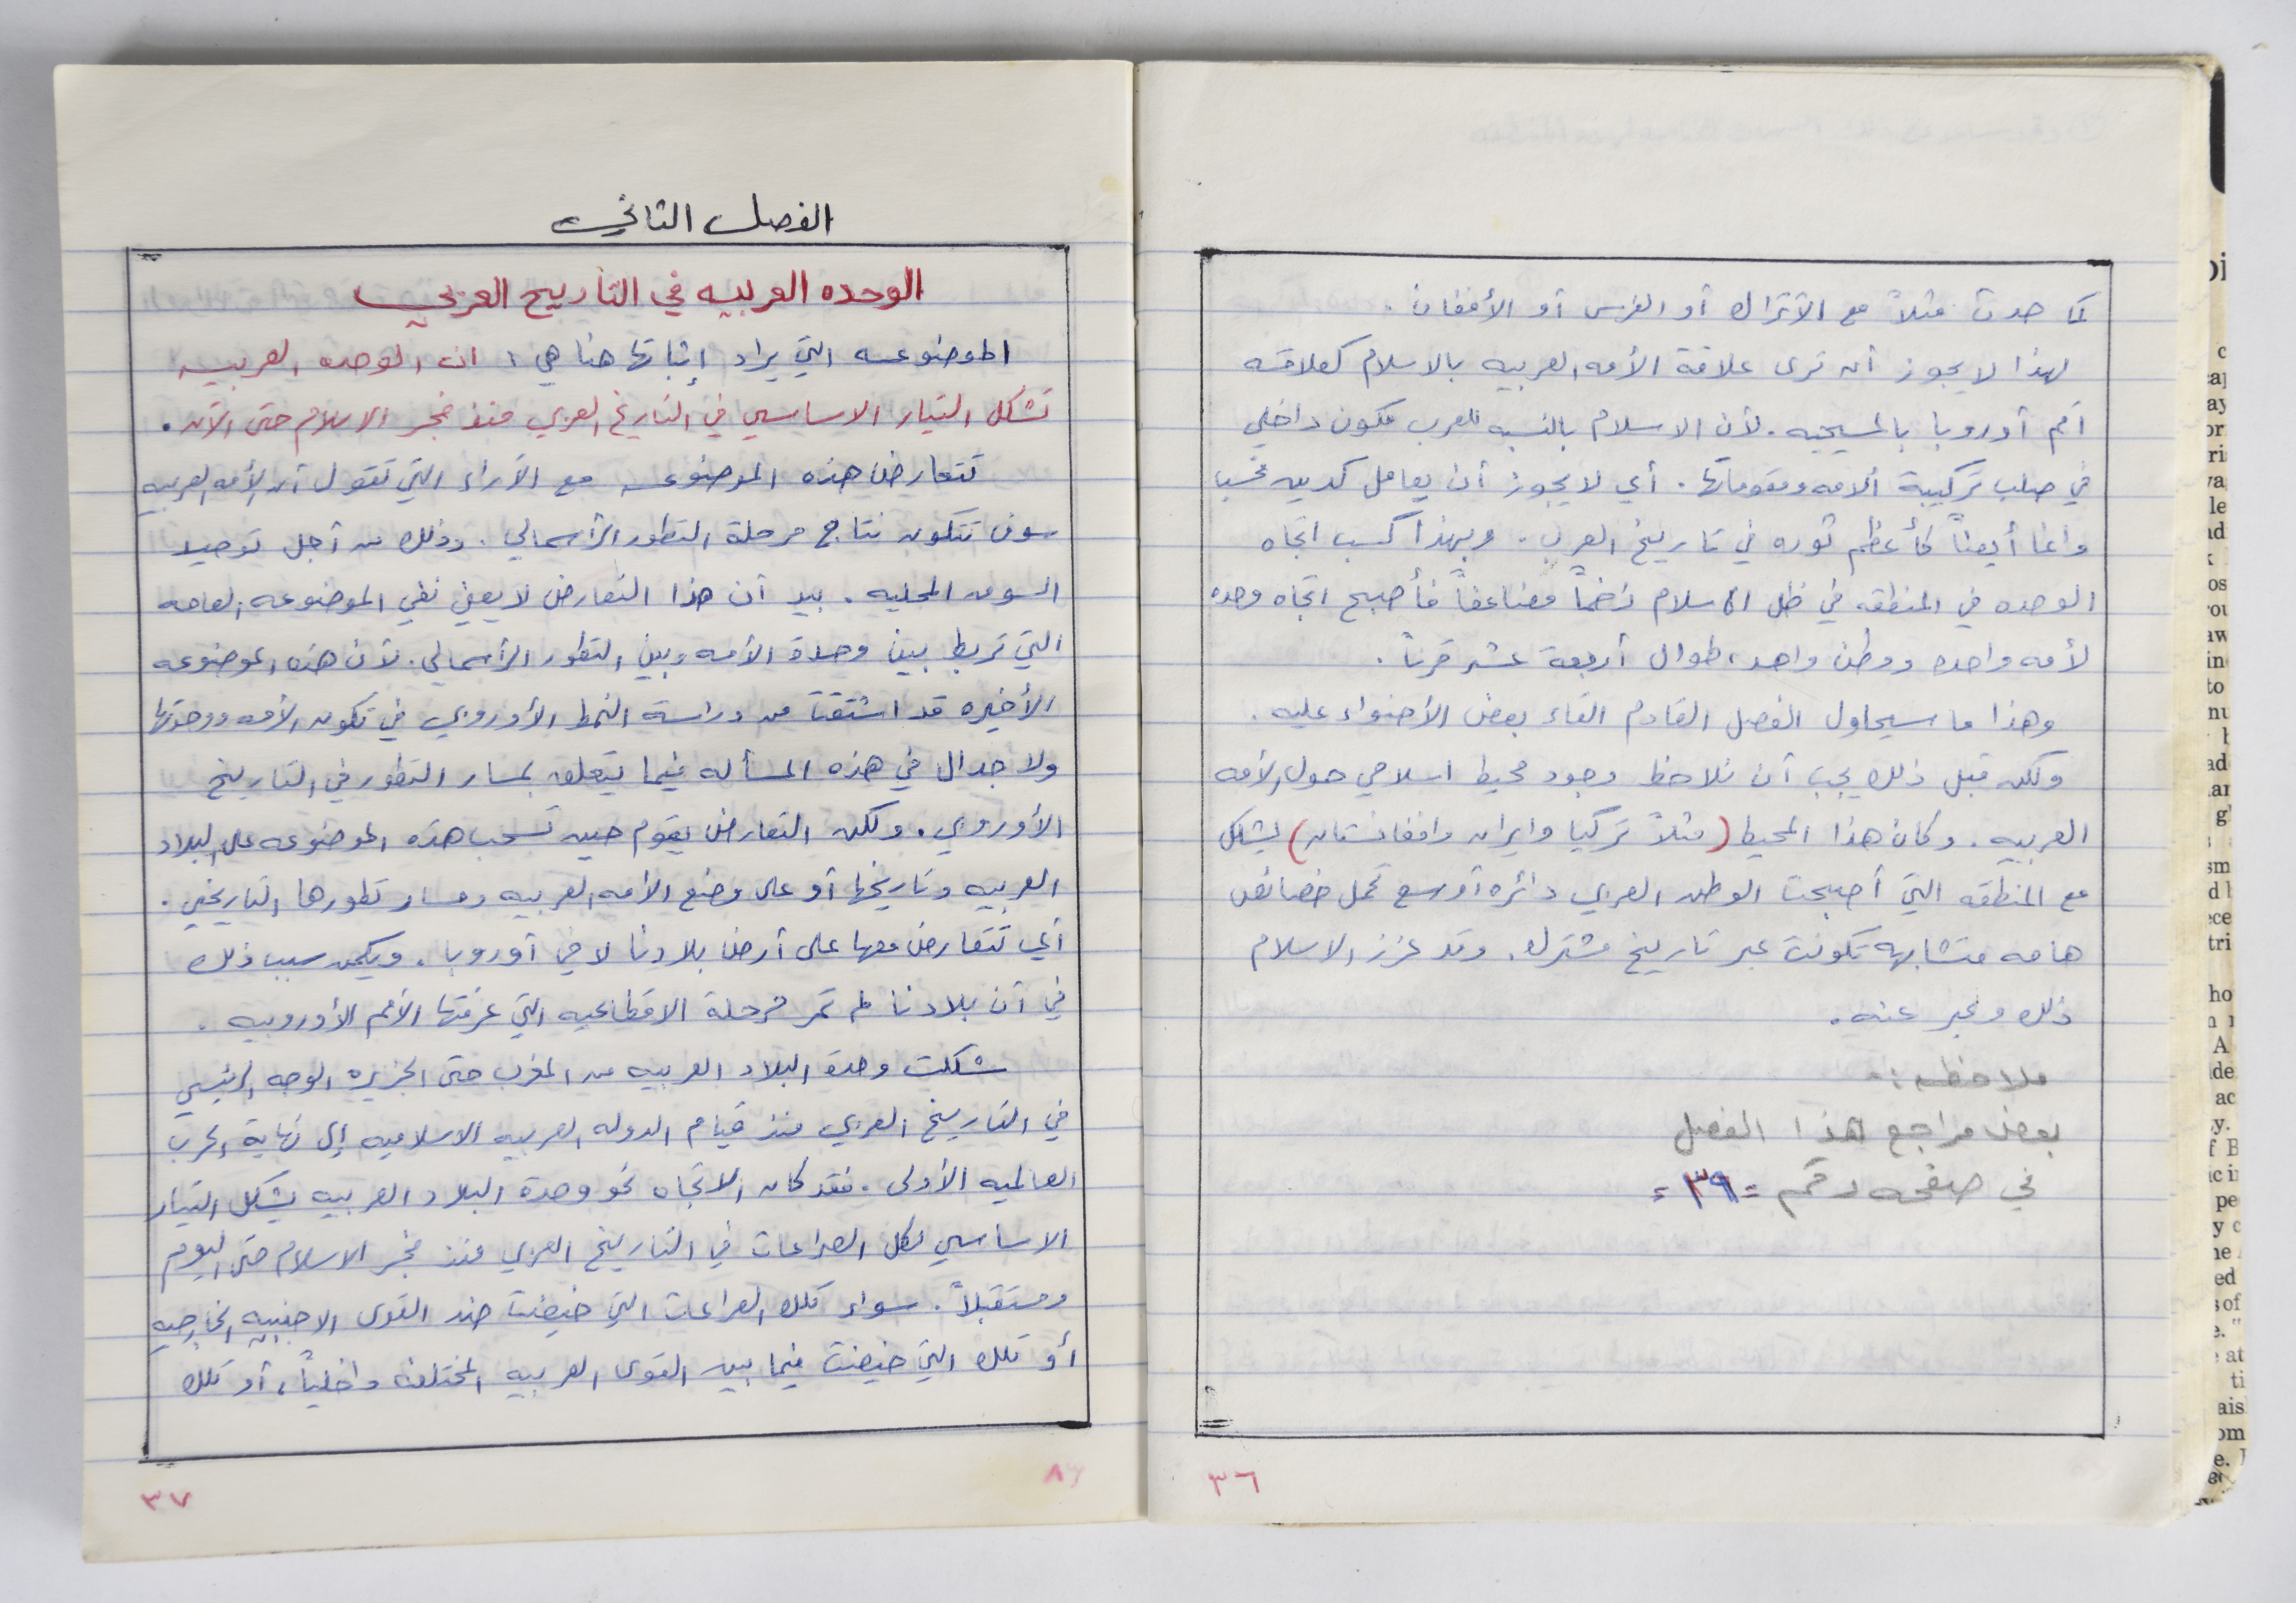 كما حدث مثلاً مع الأتراك أو الفرس أو الأفغان .
لهذا لا يجوز أن نرى علاقة الأمه العربيه بالاسلام كعلاقة
أمم أوروبا بالمسيحيه . لأن الاسلام بالنسبه للعرب مكون داخلي
في صلب تركيبة الامه ومقوماتها . أي لا يجوز أن يعامل كدين فحسب
وانما أيضاً كأعظم ثوره في تاريخ العرب . وبهذا كسب اتجاه
الوحده في المنطقه في ظل الاسلام زخماً مضاعفاً فأصبح اتجاه وحده
لأمه واحده ووطن واحد ، طوال أربعة عشر قرناً .
وهذا ما سيحاول الفصل القادم القاء بعض الأضواء عليه .
ولكن قبل ذلك يجب أن نلاحظ وجود محيط اسلامي حول الأمه
العربيه . وكان هذا المحيط (مثلاً تركيا وايران وافغانستان) يشكل
مع المنطقه التي أصبحت الوطن العربي دائره أوسع تحمل خصائص
هامه متشابهه تكونت عبر تاريخ مشترك . وقد عزز الاسلام
ذلك وعبر عنه .
ملاحظه :-
بعض مراجع هذا الفصل
في صفحه رقم = ٣٩ =
٣٦
الفصل الثاني
الوحده العربيه في التاريخ العربي
الموضوعه التي يراد إثباتها هنا هي : ان الوحده العربيه
تشكل التيار الاساسي في التاريخ العربي منذ فجر الاسلام حتى الآن .
تتعارض هذه الموضوعه مع الآراء التي تقول أن الأمه العربيه
سوف تتكون نتاج مرحلة التطور الرأسمالي . وذلك من أجل توحيد
السوق المحليه . بيد أن هذا التعارض لا يعني نفي الموضوعه العامه
التي تربط بين وحدة الأمه وبين التطور الرأسمالي . لأن هذه الموضوعه
الأخيره قد اشتقت من دراسة النمط الأوروبي في تكون الأمه ووحدتها
ولا جدال في هذه المسأله فيما يتعلق بمسار التطور في التاريخ
الأوروبي . ولكن التعارض يقوم حين تسحب هذه الموضوعه على البلاد
العربيه وتاريخها أو على وضع الأمه العربيه ومسار تطورها التاريخي .
أي تتعارض معها على أرض بلادنا لا في أوروبا . ويكمن سبب ذلك
في أن بلادنا لم تمر بمرحلة الاقطاعيه التي عرفتها الأمم الأوروبيه .
شكلت وحدة البلاد العربيه من المغرب حتى الجزيره الوجه الرئيسي
في التاريخ العربي منذ قيام الدوله العربيه الاسلاميه إلى نهاية الحرب
العالميه الأولى . فقد كان الاتجاه نحو وحدة البلاد العربيه يشكل التيار
الاساسي لكل الصراعات في التاريخ العربي منذ فجر الاسلام حتى اليوم
ومستقبلاً . سواء تلك الصراعات التي خيضت ضد القوى الاجنبيه الخارجيه
أو تلك التي خيضت فيما بين القوى العربيه المختلفه داخلياً ، أو تلك
٣٧